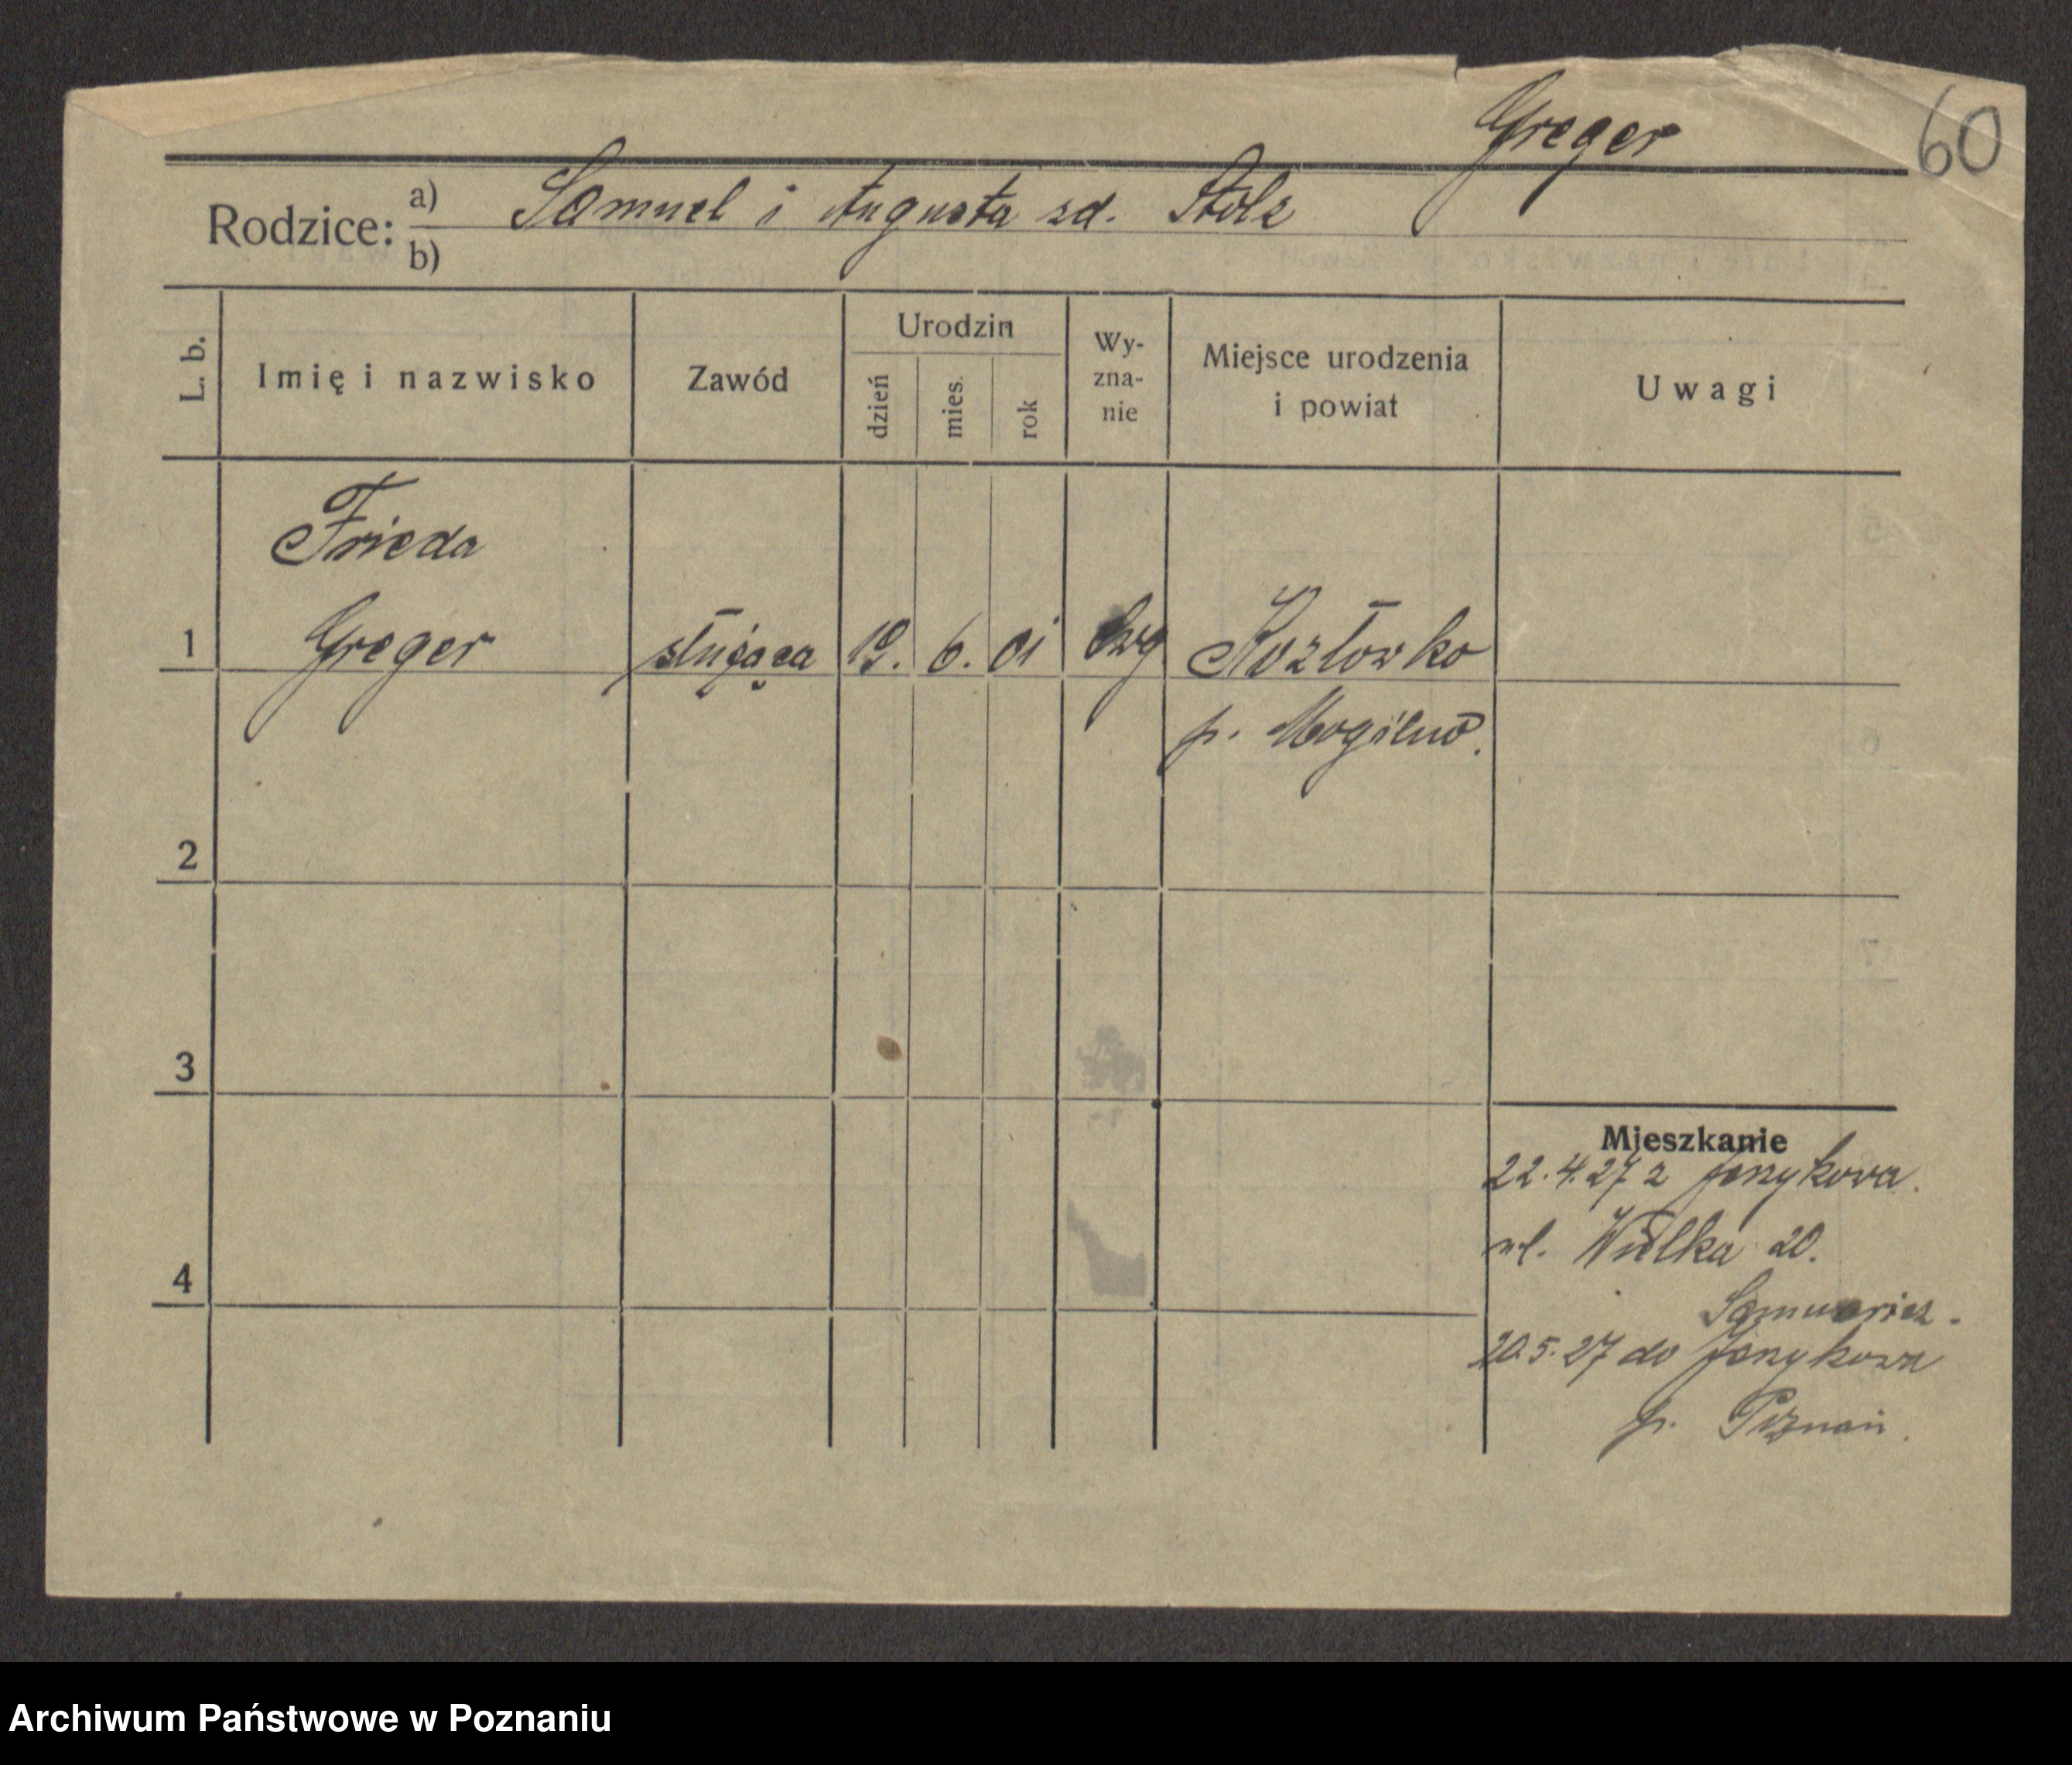 Greger
60
Rodzice: a) Samuel i Augusta zd. Stolz
b)
L. b. Imię i nazwisko Zawód Urodzin dzień mies. rok Wy-zna-nie Miejsce urodzenia i powiat Uwagi
Frieda
1 Greger służąca 19. 6. 01 Ewg Kozłowko
p. Mogilno.
2
3
Mieszkanie
22.4.27 z Jerzykowa.
ul. Wielka 20.
4
20.5.27 do Jerzykowa
p. Poznań.
Archiwum Państwowe w Poznaniu